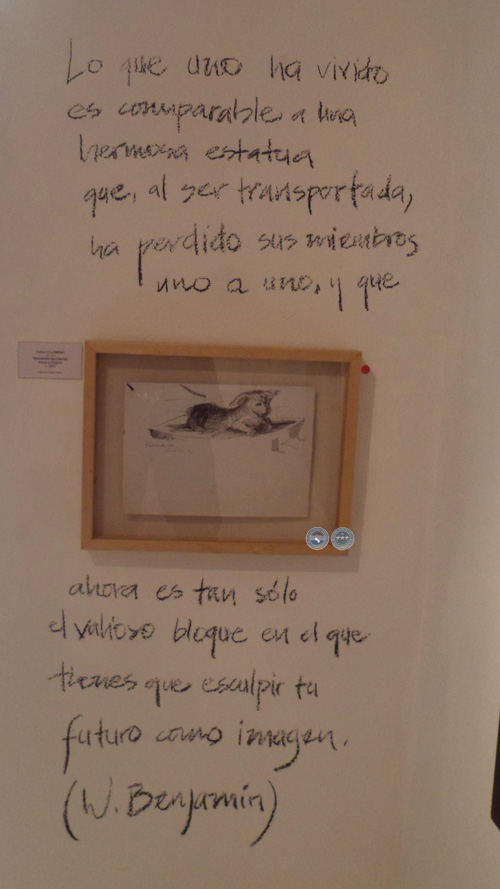 Lo que uno ha vivido
es comparable a una
hermosa estatua
que, al ser transportada,
ha perdido sus miembros
uno a uno, y que
ahora es tan sólo
el valioso bloque en el que
tienes que esculpir tu
futuro como imagen.
(W. Benjamin)